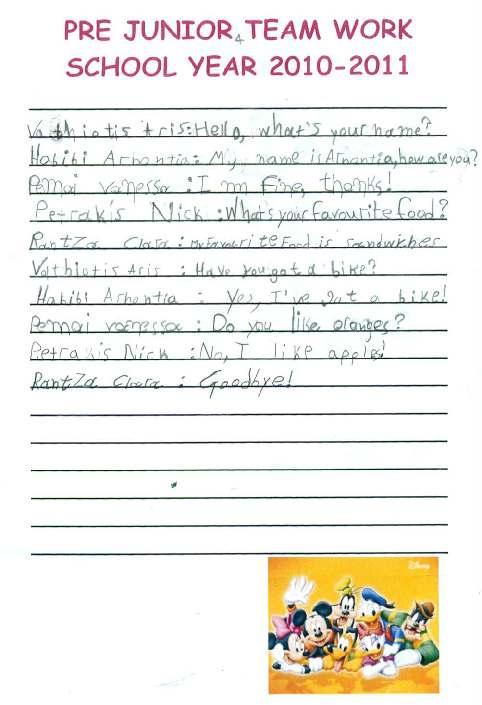 PRE JUNIOR 4 TEAM WORK
SCHOOL YEAR 2010-2011
Vathiotis Aris: Hello, what's your name?
Habibi Arhontia: My name is Arhontia, how are you?
Pemai vanessa: I'm fine, thanks!
Petrakis Nick: What's your favourite food?
Rantza Clara: My favourite food is sandwiches
Vathiotis Aris: Have you got a bike?
Habibi Arhontia: Yes, I've got a bike!
Pemai vanessa: Do you like oranges?
Petrakis Nick: No, I like apples!
Rantza Clara: Goodbye!
Disney